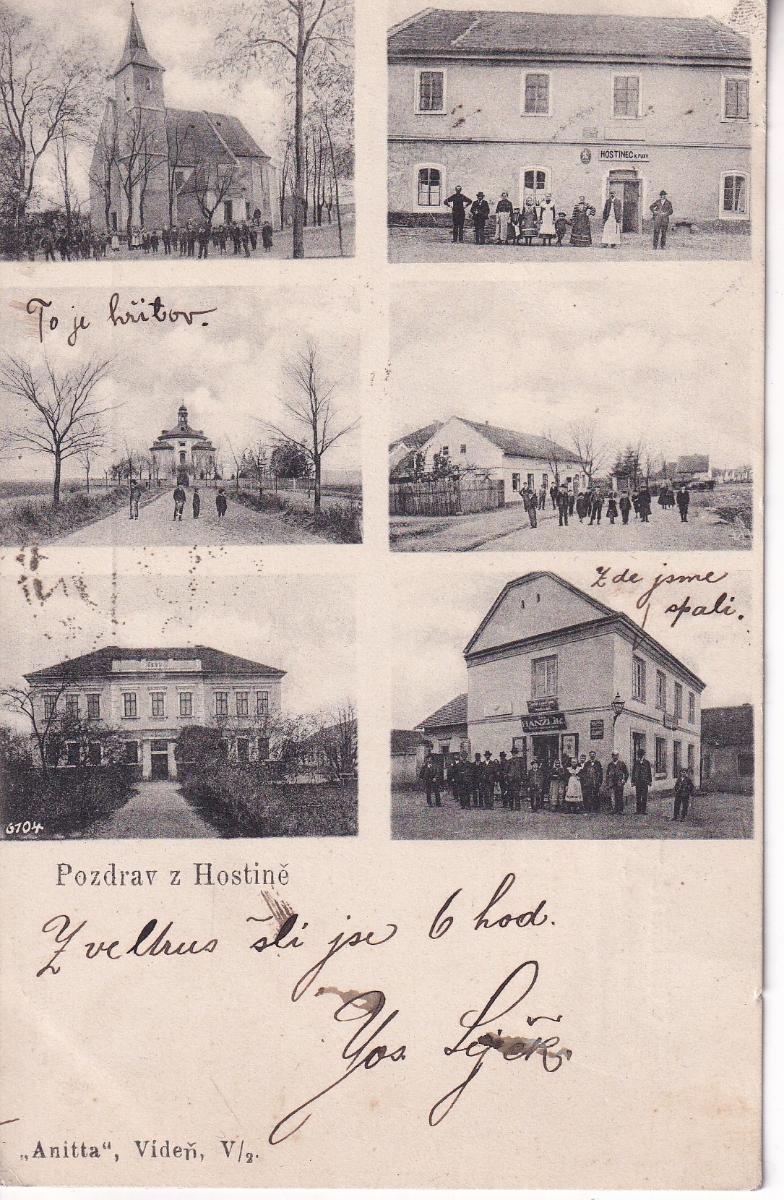 HOSTINEC
To je hřitov.
Zde jsme
spali.
HANZLÍK
6104
Pozdrav z Hostině
Z veltrus šli jse 6 hod.
Jos.
„Anitta“, Vídeň, V/2.